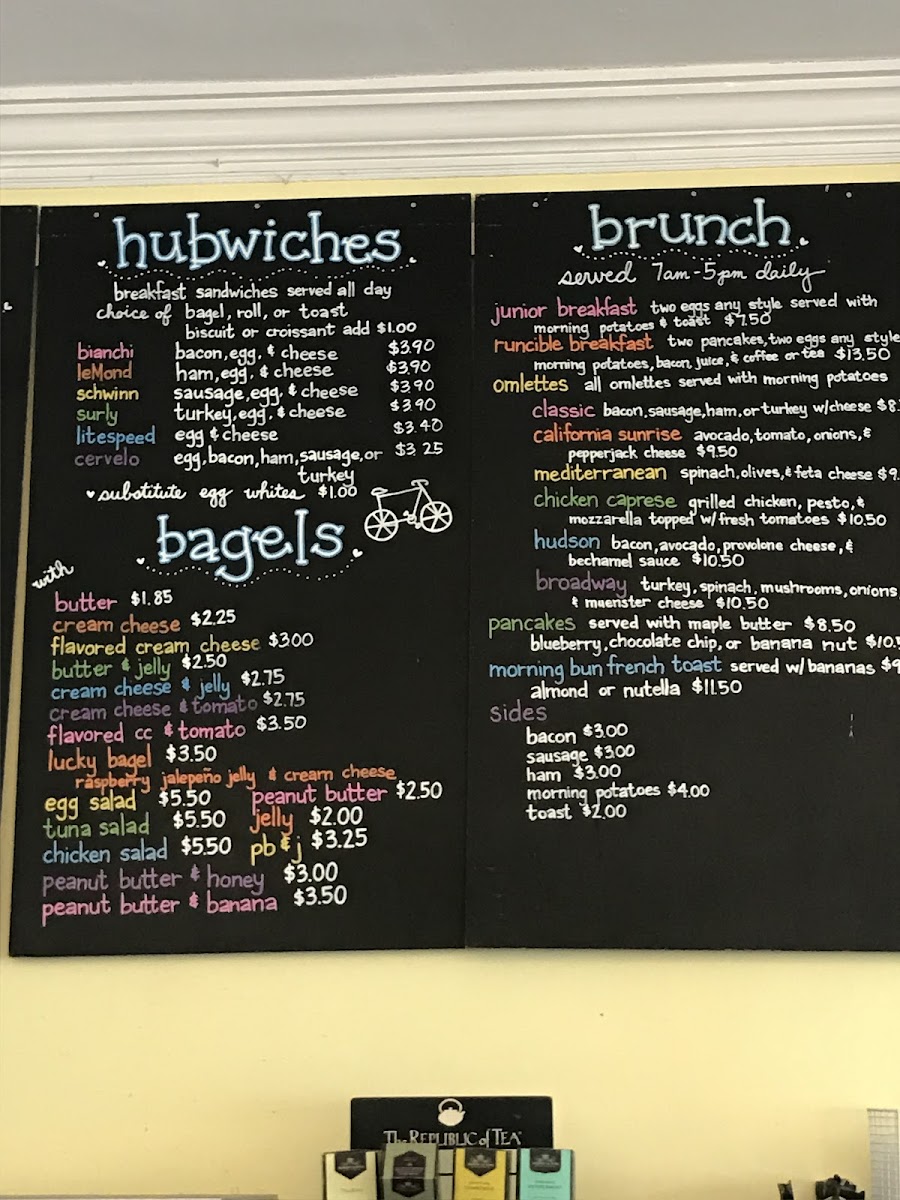 hubwiches
breakfast sandwiches served all day
choice of bagel, roll, or toast
biscuit or croissant add $1.00
bianchi bacon, egg, & cheese $3.90
leMond ham, egg, & cheese $3.90
schwinn sausage, egg, & cheese $3.90
surly turkey, egg, & cheese $3.90
litespeed egg & cheese $3.40
cervelo egg, bacon, ham, sausage, or $3.25
turkey
substitute egg whites $1.00
bagels
with
butter $1.85
cream cheese $2.25
flavored cream cheese $3.00
butter & jelly $2.50
cream cheese & jelly $2.75
cream cheese & tomato $2.75
flavored cc & tomato $3.50
lucky bagel $3.50
raspberry jalepeño jelly & cream cheese
egg salad $5.50 peanut butter $2.50
tuna salad $5.50 jelly $2.00
chicken salad $5.50 pb & j $3.25
peanut butter & honey $3.00
peanut butter & banana $3.50
brunch
served 7am-5pm daily
junior breakfast two eggs any style served with
morning potatoes & toast $7.50
runcible breakfast two pancakes, two eggs any style
morning potatoes, bacon, juice, & coffee or tea $13.50
omlettes all omlettes served with morning potatoes
classic bacon, sausage, ham, or turkey w/cheese $8.
california sunrise avocado, tomato, onions, &
pepperjack cheese $9.50
mediterranean spinach, olives, & feta cheese $9.
chicken caprese grilled chicken, pesto, &
mozzarella topped w/ fresh tomatoes $10.50
hudson bacon, avocado, provolone cheese, &
bechamel sauce $10.50
broadway turkey, spinach, mushrooms, onions
& muenster cheese $10.50
pancakes served with maple butter $8.50
blueberry, chocolate chip, or banana nut $10.5
morning bun french toast served w/ bananas $9
almond or nutella $11.50
sides
bacon $3.00
sausage $3.00
ham $3.00
morning potatoes $4.00
toast $2.00
The REPUBLIC of TEA